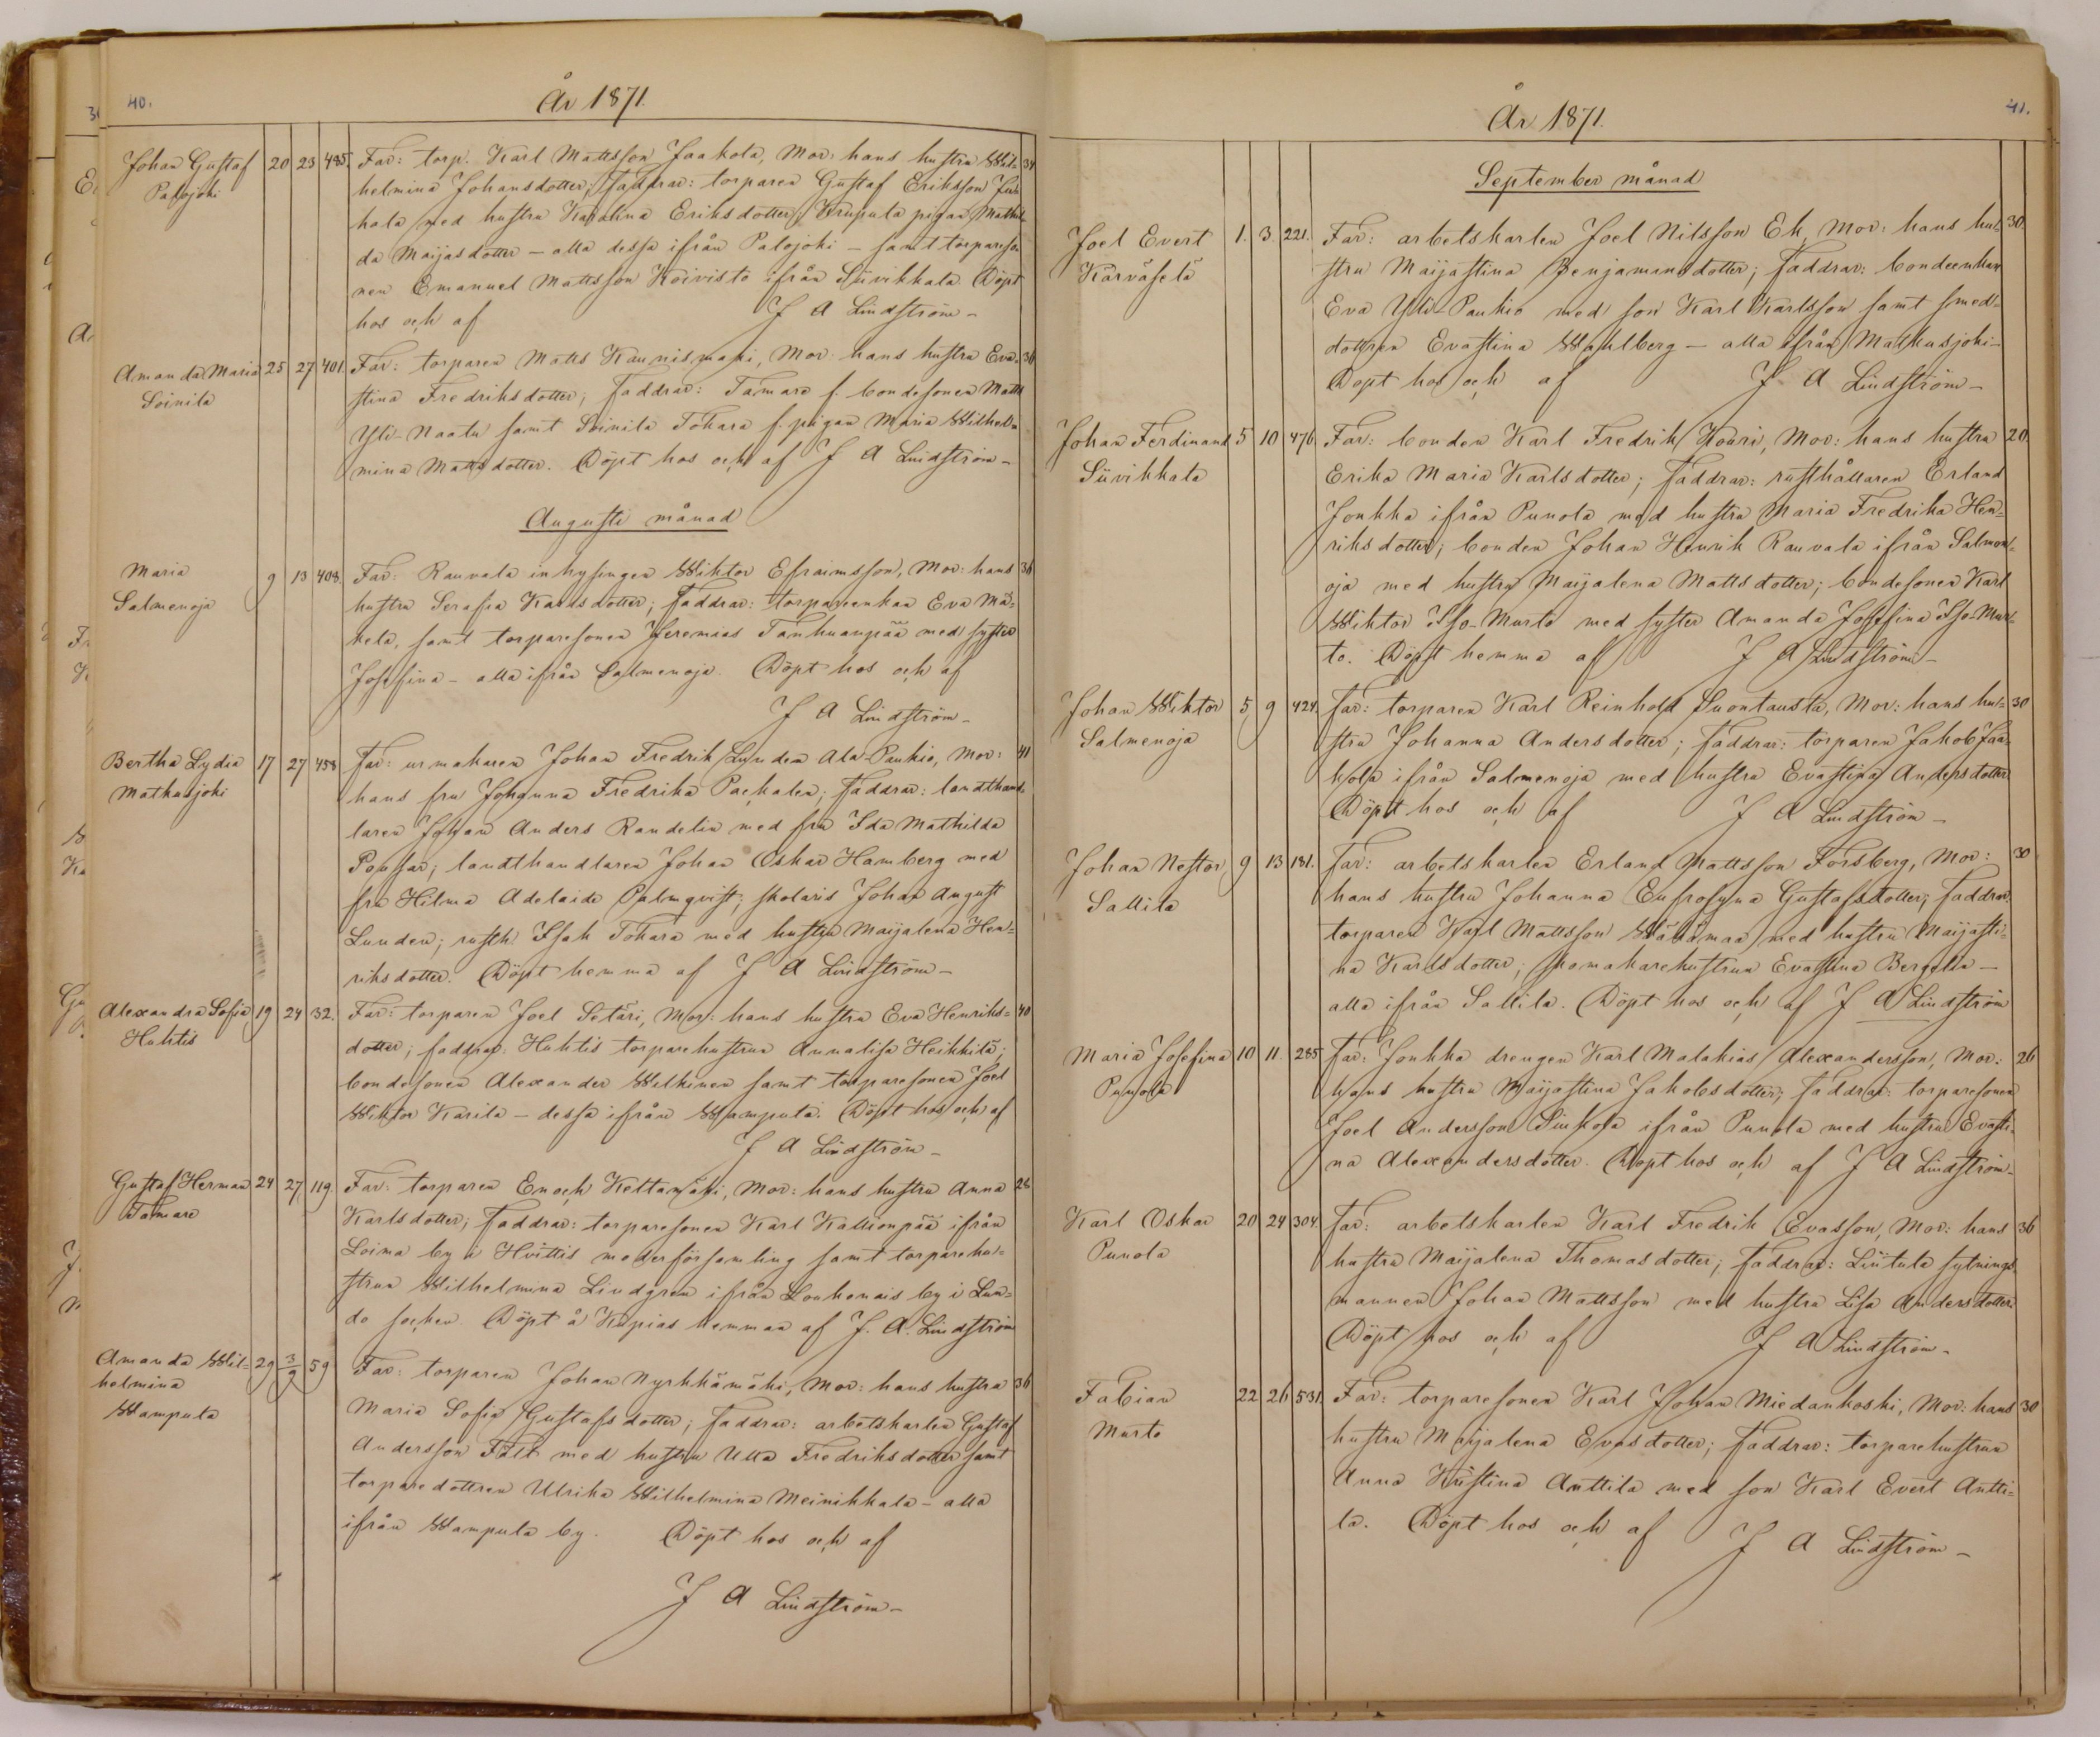 40.
År 1871.
Johan Gustaf 20 23 485. Far: torp. Karl Mattsson Jaakola, Mor: hans hustru Wil- 34
Palojoki helmina Johansdotter; Faddrar: torparen Gustaf Eriksson
kala med hustru Karolina Eriksdotter; pigan Mathil
da Maijasdotter – alla dessa ifrån Palojoki – samt torpareso
nen Emanuel Mattsson Koivisto ifrån Siivikkala. Döpt
hos och af J A Lindström –
Amanda Maria 25 27 401. Far: torparen Matts Kaunismäki, Mor: hans hustru Eva- 36
Soinila stina Fredriksdotter; Faddrar: Tamare f. bondesonen Matts
Yli-Naatu samt Soinila Tokara f. pigan Maria Wilhel-
mina Mattsdotter. Döpt hos och af J A Lindström –
Augusti månad
Maria 9 13 408. Far: Rauvala inhysingen Wiktor Efraimsson, Mor: hans 36
Salmenoja hustru Serafia Karlsdotter; Faddrar: torpareenkan Eva Mä-
kelä, samt torparesonen Jeremias Tanhuanpää med syster
Josefina – alla ifrån Salmenoja. Döpt hos och af
J A Lindström –
Bertha Lydia 17 27 458 Far: urmakaren Johan Fredrik Lunden Ala-Paukio, Mor: 41
Matkusjoki hans fru Johanna Fredrika Packalen; Faddrar: landthand-
laren Johan Anders Randelin med fru Ida Mathilda
landthandlaren Johan Oskar Hamberg med
fru Hilma Adelaide Palmqvist; skolaris Johan August
Lunden; rusth. Isak Tokara med hustru Maijalena Hen-
riksdotter. Döpt hemma af J A Lindström –
Alexandra Sofia 19 24 32. Far: torparen Joel Setäri, Mor: hans hustru Eva Henriks- 40
Huhtis dotter; faddrar: Huhtis torparehustrun Annalisa Heikkilä;
bondesonen Alexander Welkinen samt torparesonen Joel
Wiktor Karila – dessa ifrån Wampula. Döpt hos och af
J A Lindström –
Gustaf Herman 24 27 119. Far: torparen Enoch Keltamäki, Mor: hans hustru Anna 28
Tamare Karlsdotter; Faddrar: torparesonen Karl Kallionpää ifrån
Loima by i Hvittis moderförsamling samt torparehu-
strun Wilhelmina Lindgren ifrån Kouhenais by i Lun-
do socken. Döpt å Kupias hemman af J. A. Lindström
Amanda Wil- 29 3/9 59 Far: torparen Johan Nyrkkämäki, Mor: hans hustru 36
helmina Maria Sofia Gustafsdotter; Faddrar: arbetskarlen Gustaf
Wampula Andersson Fält med hustru Ulla Fredriksdotter samt
torparedottren Ulrika Wilhelmina Meinikkala – alla
ifrån Wampula by. Döpt hos och af
J A Lindström –
41.
År 1871.
September månad
Joel Evert 1. 3. 221. Far: arbetskarlen Joel Nilsson Ek, Mor: hans hu- 30.
Karväselä stru Maijastina Benjaminsdotter; Faddrar: bondeenkan
Eva Yli-Paukio med son Karl Karlsson samt smed-
dottren Evastina Wahlberg – alla ifrån Matkusjoki –
Döpt hos och af J A Lindström –
Johan Ferdinand 5 10 476 Far: bonden Karl Fredrik Kouri, Mor: hans hustru 20.
Siivikkala Erika Maria Karlsdotter; Faddrar: rusthållaren Erland
Jonkka ifrån Punola med hustru Maria Fredrika Hen-
riksdotter; bonden Johan Henrik Rauvala ifrån Salmen-
oja med hustru Maijalena Mattsdotter; bondesonen Karl
Wiktor Iso-Murto med syster Amanda Josefina Iso-Mur-
to. Döpt hemma af J A Lindström –
Johan Wiktor 5 9 424. Far: torparen Karl Reinhold Suontausta, Mor: hans hu- 30
Salmenoja stru Johanna Andersdotter; Faddrar: torparen Jakob Jaa-
kola ifrån Salmenoja med hustru Evastina Andersdotter.
Döpt hos och af J A Lindström –
Johan Nestor 9 13 181. Far: arbetskarlen Erland Mattsson Forsberg, Mor: 30
Sallila hans hustru Johanna Eufrosyna Gustafsdotter; Faddrar:
torparen Karl Mattsson med hustru Maijasti-
na Karlsdotter; skomakarehustrun Evastina
alla ifrån Sallila. Döpt hos och af J A Lindström
Maria Josefina 10 11. 285 Far: Jonkka drengen Karl Malakias Alexandersson, Mor: 26
Punola hans hustru Maijastina Jakobsdotter; Faddrar: torparesonen
Joel Andersson ifrån Punola med hustru Evasti-
na Alexandersdotter. Döpt hos och af J A Lindström –
Karl Oskar 20 24 304. Far: arbetskarlen Karl Fredrik Evasson, Mor: hans 36
Punola hustru Maijalena Thomasdotter; Faddrar: Liutula sytnings-
mannen Johan Mattsson med hustru Lisa Andersdotter.
Döpt hos och af J A Lindström –
Fabian 22 26 531. Far: torparesonen Karl Johan Miedankoski, Mor: hans 30
Murto hustru Maijalena Evasdotter; Faddrar: torparehustrun
Anna Kristina Anttila med son Karl Evert Antti-
la. Döpt hos och af J A Lindström –